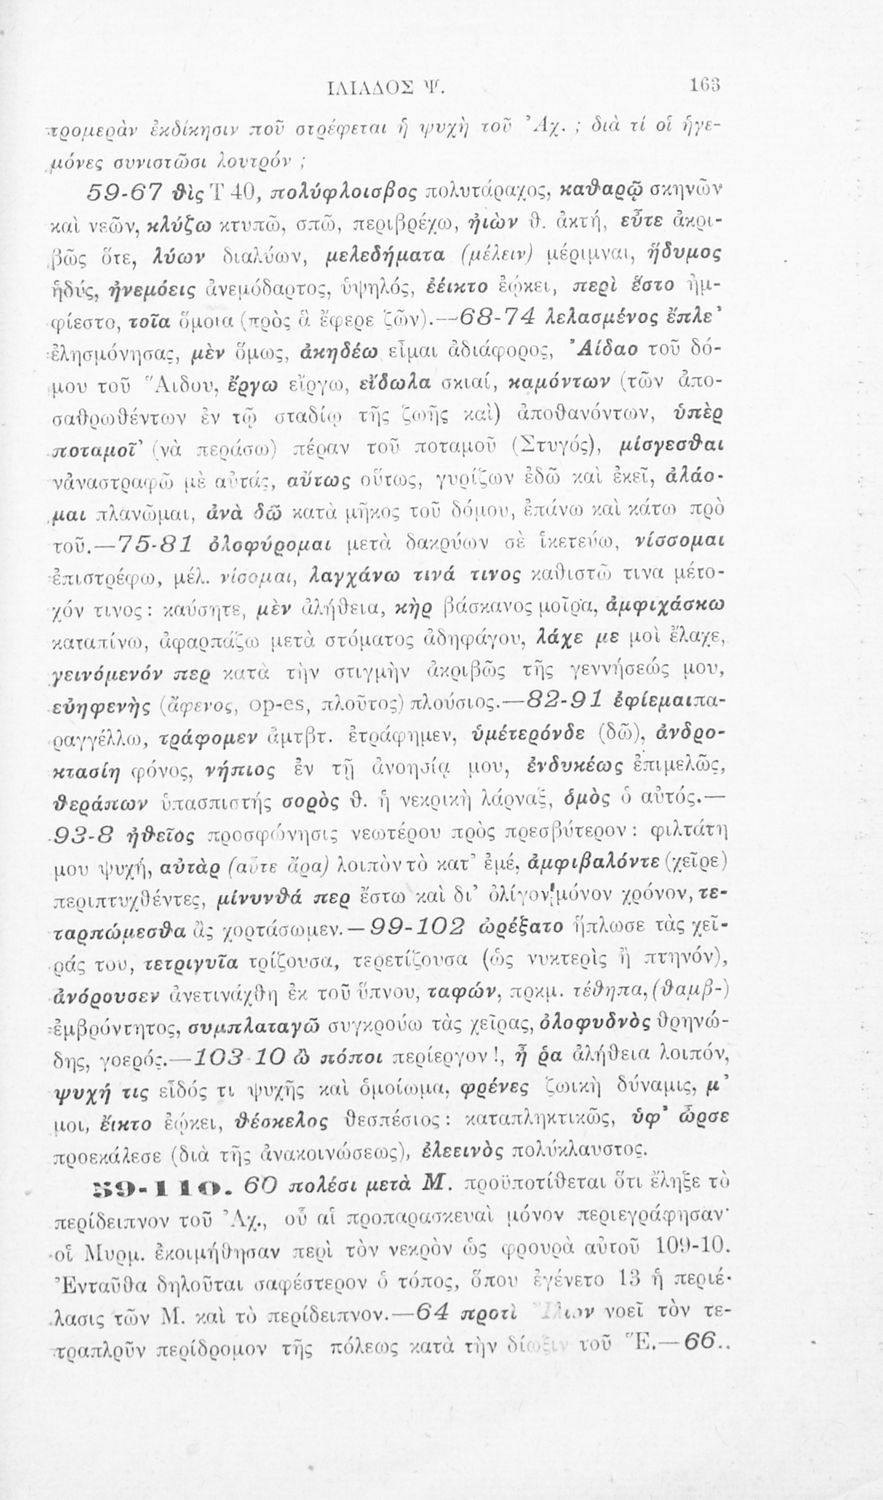 ΙΛΙΑΔΟΣ Ψ. 163
τρομερὰν ἐκδίκησιν ποῦ στρέφεται ἡ ψυχὴ τοῦ Ἀχ. ; διὰ τί οἱ ἡγε-
μόνες συνιστῶσι λουτρόν ;
59-67 θὶς Τ 40, πολύφλοισβος πολυτάραχος, καθαρῷ σκηνῶν
καὶ νεῶν, κλύζω κτυπῶ, σπῶ, περιβρέχω, ἠιὼν θ. ἀκτή, εὖτε ἀκρι-
βῶς ὅτε, λύων διαλύων, μελεδήματα (μέλειν) μέριμναι, ἥδυμος
ἡδύς, ἠνεμόεις ἀνεμόδαρτος, ὑψηλός, ἐέικτο ἐῴκει, περὶ ἕστο ἠμ-
φίεστο, τοῖα ὅμοια (πρὸς ἃ ἔφερε ζῶν).—68-74 λελασμένος ἔπλε'
ἐλησμόνησας, μὲν ὅμως, ἀκηδέω εἶμαι ἀδιάφορος, Ἀίδαο τοῦ δό-
μου τοῦ Ἅιδου, ἔργω εἴργω, εἴδωλα σκιαί, καμόντων (τῶν ἀπο-
σαθρωθέντων ἐν τῷ σταδίῳ τῆς ζωῆς καὶ) ἀποθανόντων, ὑπὲρ
ποταμοῖ' (νὰ περάσω) πέραν τοῦ ποταμοῦ (Στυγός), μίσγεσθαι
νἀναστραφῶ μὲ αὐτάς, αὔτως οὕτως, γυρίζων ἐδῶ καὶ ἐκεῖ, ἀλάο-
μαι πλανῶμαι, ἀνὰ δῶ κατὰ μῆκος τοῦ δόμου, ἐπάνω καὶ κάτω πρὸ
τοῦ.—75-81 ὀλοφύρομαι μετὰ δακρύων σὲ ἱκετεύω, νίσσομαι
ἐπιστρέφω, μέλ. νίσομαι, λαγχάνω τινά τινος καθιστῶ τινα μέτο-
χόν τινος : καύσητε, μὲν ἀλήθεια, κὴρ βάσκανος μοῖρα, ἀμφιχάσκω
καταπίνω, ἀφαρπάζω μετὰ στόματος ἀδηφάγου, λάχε με μοὶ ἔλαχε,
γεινόμενόν περ κατὰ τὴν στιγμὴν ἀκριβῶς τῆς γεννήσεώς μου,
εὐηφενὴς (ἄφενος, op-es, πλοῦτος) πλούσιος.—82-91 ἐφίεμαιπα-
ραγγέλλω, τράφομεν ἀμτβτ. ἐτράφημεν, ὑμέτερόνδε (δῶ), ἀνδρο-
κτασίη φόνος, νήπιος ἐν τῇ ἀνοησίᾳ μου, ἐνδυκέως ἐπιμελῶς,
θεράπων ὑπασπιστής σορὸς θ. ἡ νεκρικὴ λάρναξ, ὁμὸς ὁ αὐτός.—
93-8 ἠθεῖος προσφώνησις νεωτέρου πρὸς πρεσβύτερον : φιλτάτη
μου ψυχή, αὐτὰρ (αὖτε ἄρα) λοιπὸν τὸ κατ' ἐμέ, ἀμφιβαλόντε (χεῖρε)
περιπτυχθέντες, μίνυνθά περ ἔστω καὶ δι' ὀλίγον μόνον χρόνον, τε-
ταρπώμεσθα ἂς χορτάσωμεν.—99-102 ὠρέξατο ἥπλωσε τὰς χεῖ-
ράς του, τετριγυῖα τρίζουσα, τερετίζουσα (ὡς νυκτερὶς ἢ πτηνόν),
ἀνόρουσεν ἀνετινάχθη ἐκ τοῦ ὕπνου, ταφών, πρκμ. τέθηπα, (θαμβ-)
ἐμβρόντητος, συμπλαταγῶ συγκρούω τὰς χεῖρας, ὀλοφυδνὸς θρηνώ-
δης, γοερός.—103-10 ὢ πόποι περίεργον !, ἦ ῥα ἀλήθεια λοιπόν,
ψυχή τις εἶδός τι ψυχῆς καὶ ὁμοίωμα, φρένες ζωικὴ δύναμις, μ'
μοι, ἔικτο ἐῴκει, θέσκελος θεσπέσιος : καταπληκτικῶς, ὑφ' ὦρσε
προεκάλεσε (διὰ τῆς ἀνακοινώσεως), ἐλεεινὸς πολύκλαυστος.
59-110. 60 πολέσι μετὰ Μ. προϋποτίθεται ὅτι ἔληξε τὸ
περίδειπνον τοῦ Ἀχ., οὗ αἱ προπαρασκευαὶ μόνον περιεγράφησαν·
οἱ Μυρμ. ἐκοιμήθησαν περὶ τὸν νεκρὸν ὡς φρουρὰ αὐτοῦ 109-10.
Ἐνταῦθα δηλοῦται σαφέστερον ὁ τόπος, ὅπου ἐγένετο 13 ἡ περιέ-
λασις τῶν Μ. καὶ τὸ περίδειπνον.—64 προτὶ νοεῖ τὸν τε-
τραπλρῦν περίδρομον τῆς πόλεως κατὰ τὴν τοῦ Ἕ.—66..